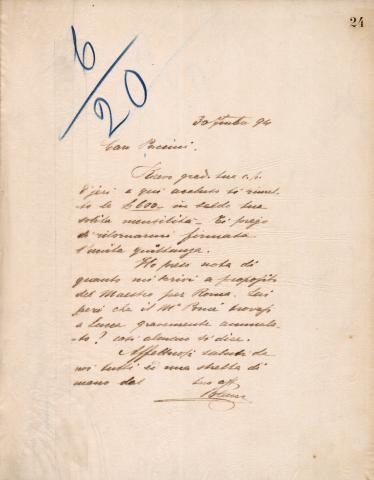 24
6/20
30 94
Caro Puccini.
Ebbi grad. tua c.p.
d'jeri e qui accluso ti rimet-
to le £ 600 - in saldo tua
solita mensilità - Ti prego
di ritornarmi firmata
l'unita quittanza.
Ho preso nota di
quanto mi scrivi a proposito
del Maestro per Roma. Sai
però che il Mº trovasi
a Lucca gravemente ammala-
to? così almeno si dice.
Affettuosi saluti da
noi tutti ed una stretta di
mano dal tuo aff.